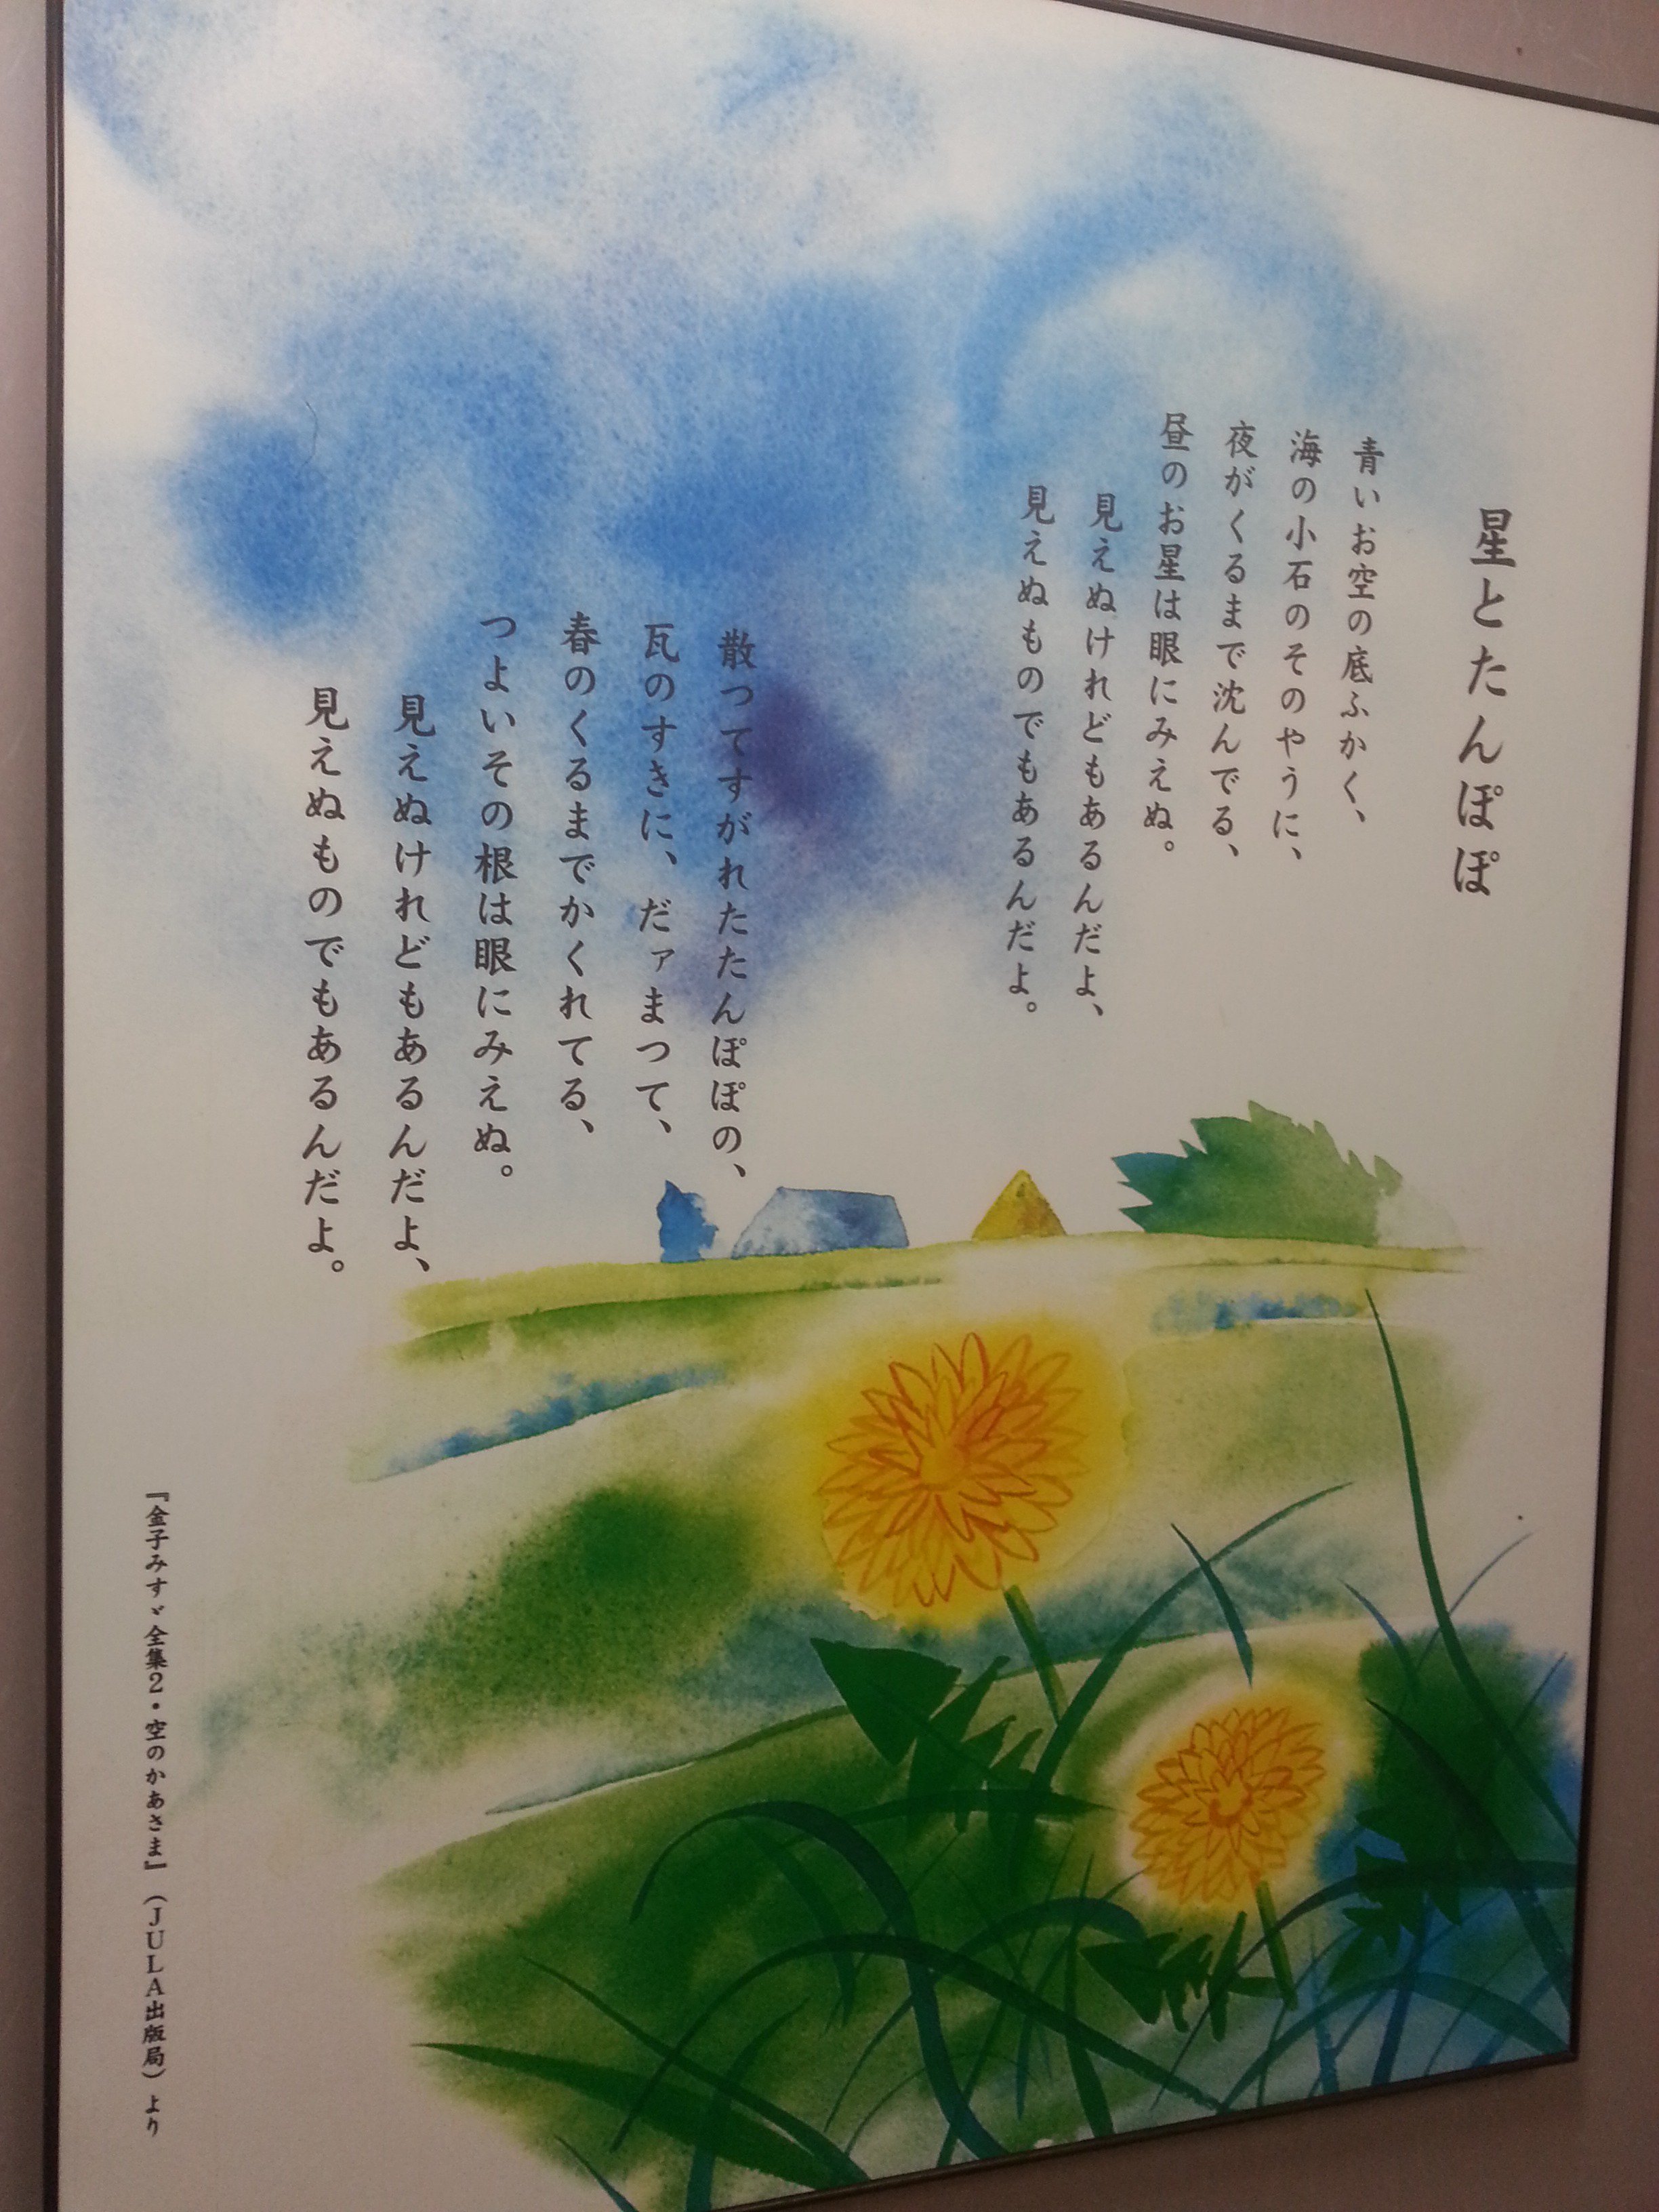 星とたんぽぽ
青いお空の底ふかく、
海の小石のそのやうに、
夜がくるまで沈んでる、
昼のお星は眼にみえぬ。
見えぬけれどもあるんだよ、
見えぬものでもあるんだよ。
散つてすがれたたんぽぽの、
瓦のすきに、だァまつて、
春のくるまでかくれてる、
つよいその根は眼にみえぬ。
見えぬけれどもあるんだよ、
見えぬものでもあるんだよ。
『金子みすゞ全集2・空のかあさま』(JULA出版局)より